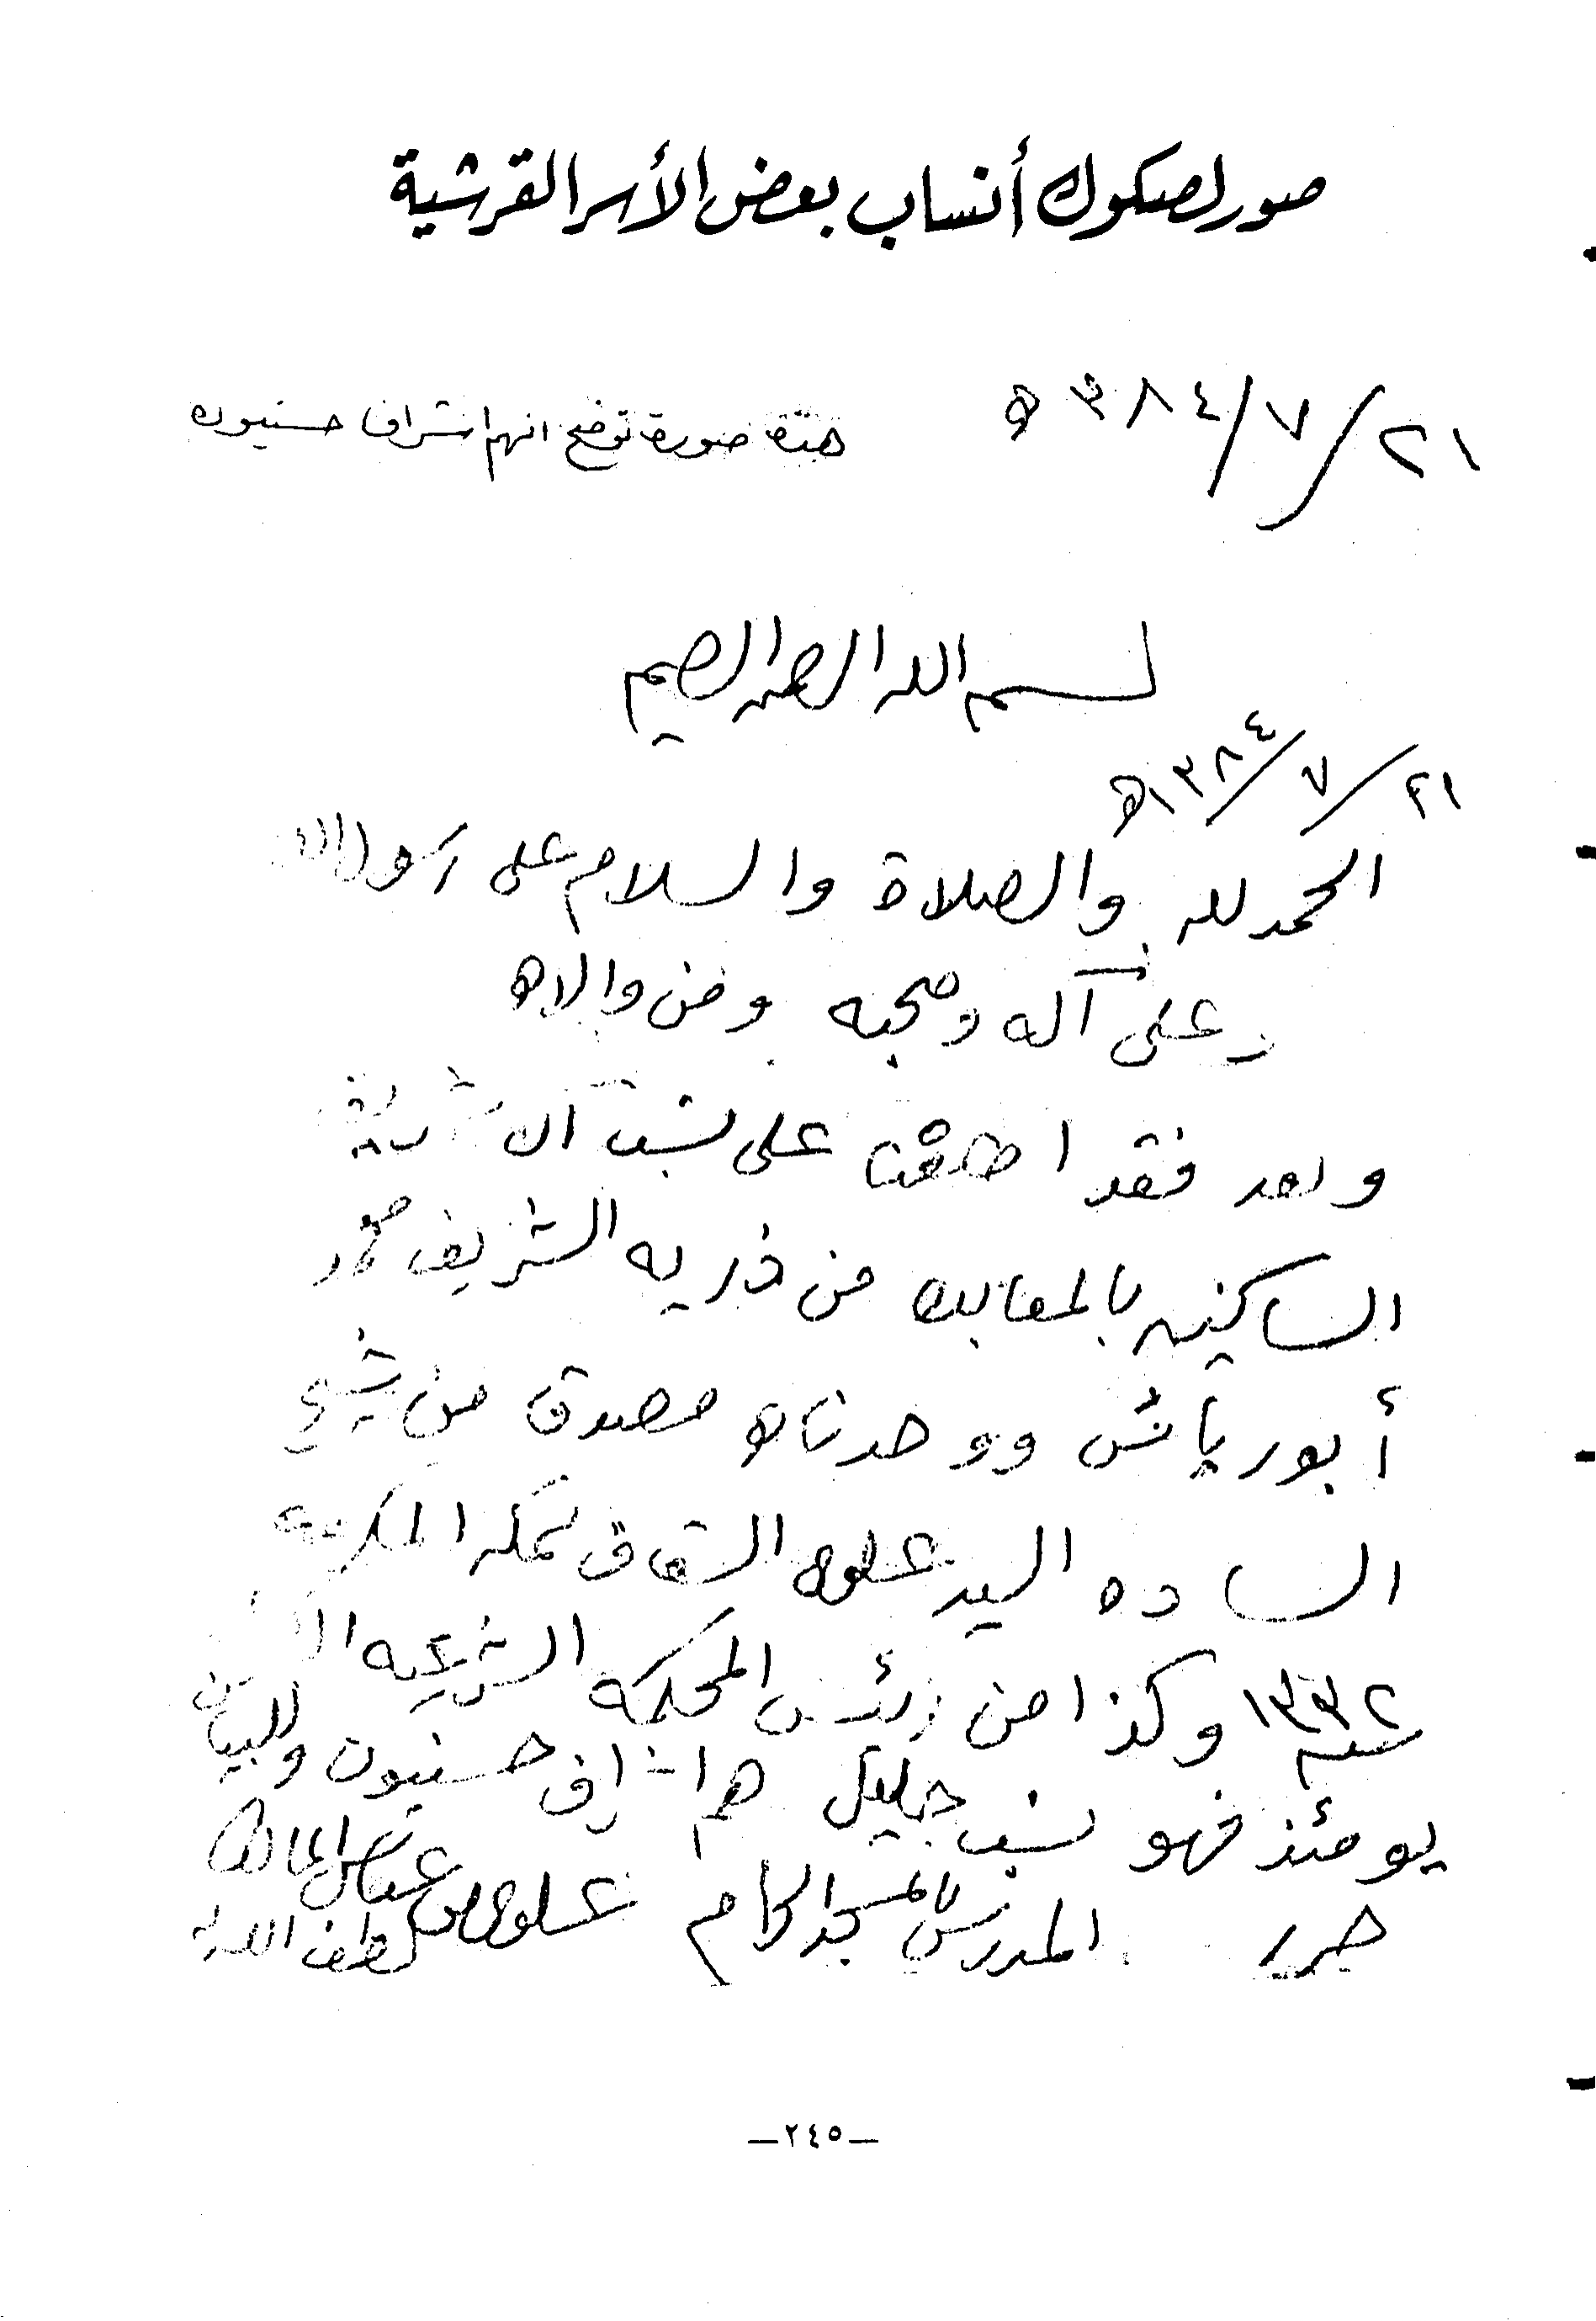 صور لصكوك أنساب بعض الأسر القرشية
٢١/٧/٣٨٤ ه
هذه صورة توضح انهم اشراف حسنيون
بسم الله الرحمن الرحيم
٢١/٧/١٣٨٤ه
الحمد لله والصلاة والسلام على رسول الله
وعلى آله وصحبه ومن والاه
وبعد فقد اطلعنا على نسب
الساكنين بالمعابده من ذريه الشريف حمود
أبو رياش ووجدناه مصدق من شيخ
الساده السيد علوي السقاف بمكه المكرمه
سنه ١٣٣٢ وكذا من رئيس المحكمه الشرعيه
يومئذ فهو نسب جليل هم اشراف حسنيون وللبيان
حرر المدرس بالمسجد الحرام علوي بن عباس المالكي
لطف الله به
—٢٤٥—